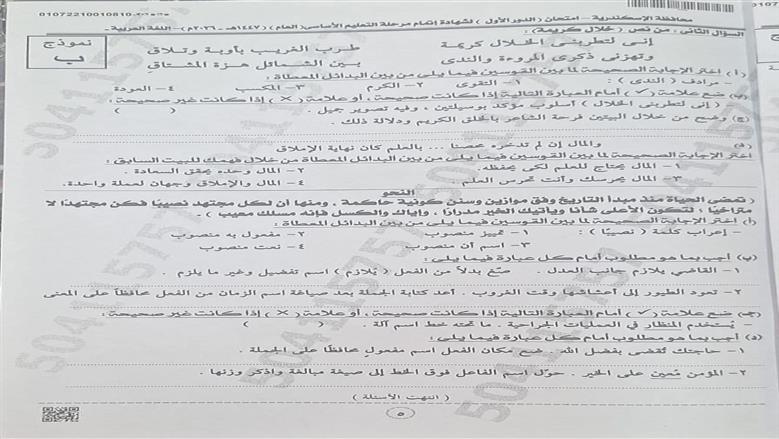 01072210010810
محافظة الإسكندرية - امتحان (الدور الأول) لشهادة إتمام مرحلة التعليم الأساسى (العام) ١٤٤٧هـ - ٢٠٢٦م - اللغة العربية
نموذج
ب
السؤال الثانى: من نص (خلال كريمة):
إنى لتطربنى الخلال كريمة طرب الغريب بأوبة وتلاق
وتهزنى ذكرى المروءة والندى بين الشمائل هزة المشتاق
(أ) اختر الإجابة الصحيحة لما بين القوسين فيما يلى من بين البدائل المعطاة:
- مرادف (الندى): ١- التقوى ٢- الكرم ٣- المكسب ٤- العودة
(ب) ضع علامة (✓) أمام العبارة التالية إذا كانت صحيحة، أو علامة (✗) إذا كانت غير صحيحة:
- (إنى لتطربنى الخلال) أسلوب مؤكد بوسيلتين، وفيه تصوير جميل. ( )
(ج) وضح من خلال البيتين فرحة الشاعر بالخلق الكريم ودلالة ذلك.
(د) والمال إن لم تدخره محصنا ... بالعلم كان نهاية الإملاق
اختر الإجابة الصحيحة لما بين القوسين فيما يلى من بين البدائل المعطاة من خلال فهمك للبيت السابق:
١- المال يحتاج للعلم لكى يحفظه. ٢- المال وحده يحقق السعادة.
٣- المال يحرسك وأنت تحرس العلم. ٤- المال والإملاق وجهان لعملة واحدة.
النحو
(تمضى الحياة منذ مبدأ التاريخ وفق موازين وسنن كونية حاكمة، ومنها أن لكل مجتهد نصيبًا فكن مجتهدًا لا
متراخيًا؛ لتكون الأعلى شأنا ويأتيك الخير مدرارًا، وإياك والكسل فإنه مسلك معيب):
(أ) اختر الإجابة الصحيحة لما بين القوسين فيما يلى من بين البدائل المعطاة:
- إعراب كلمة (نصيبًا): ١- تمييز منصوب ٢- مفعول به منصوب
٣- اسم أن منصوب ٤- نعت منصوب
(ب) أجب بما هو مطلوب أمام كل عبارة فيما يلى:
١- القاضي يلازم جانب العدل. صُغ بدلاً من الفعل (يلازم) اسم تفضيل وغير ما يلزم.
٢- تعود الطيور إلى أعشاشها وقت الغروب. أعد كتابة الجملة مع صياغة اسم الزمان من الفعل محافظاً على المعنى
(جـ) ضع علامة (✓) أمام العبارة التالية إذا كانت صحيحة، أو علامة (✗) إذا كانت غير صحيحة:
- يُستخدم المنظار في العمليات الجراحية. ما تحته خط اسم آلة. ( )
(د) أجب بما هو مطلوب أمام كل عبارة فيما يلى:
١- حاجتك تُقضى بفضل الله. ضع مكان الفعل اسم مفعول محافظًا على الجملة.
٢- المؤمن مُعين على الخير. حوّل اسم الفاعل فوق الخط إلى صيغة مبالغة واذكر وزنها.
(انتهت الأسئلة)
٥